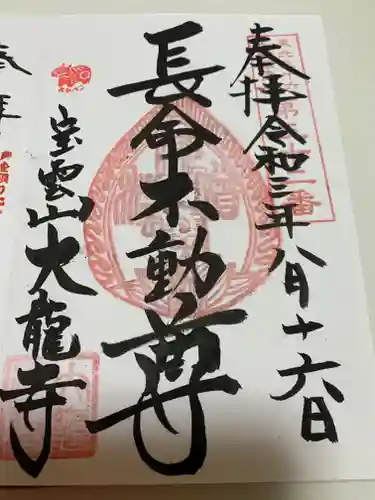 奉拝令和三年八月十六日
長命不動尊
宝雲山大龍寺